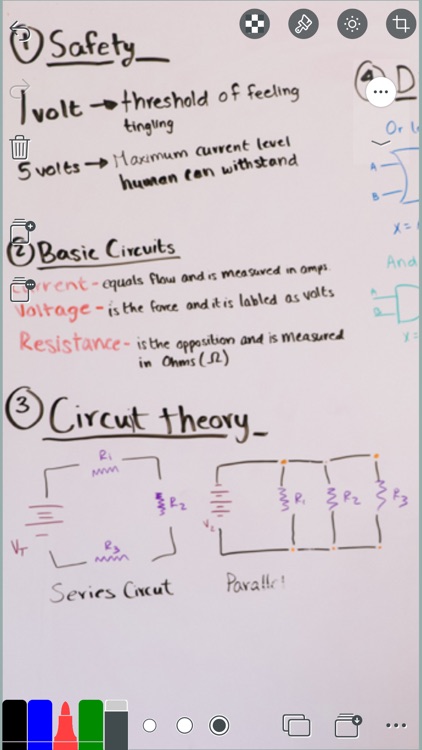 ① Safety
1 volt → threshold of feeling
tingling
5 volts → Maximum current level
human can withstand
② Basic Circuits
Current - equals flow and is measured in amps.
Voltage - is the force and it is labled as volts
Resistance - is the opposition and is measured
in Ohms (Ω)
③ Circuit theory
R1
R2
R3
VT
Series Circut
R1
R2
R3
Parallel
④ D
Or
A
B
X =
And
A
X =